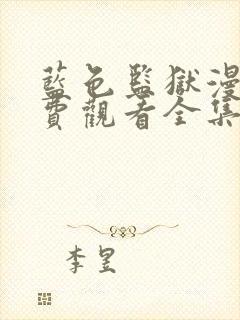 藍色監獄漫
費觀看全集
李昱